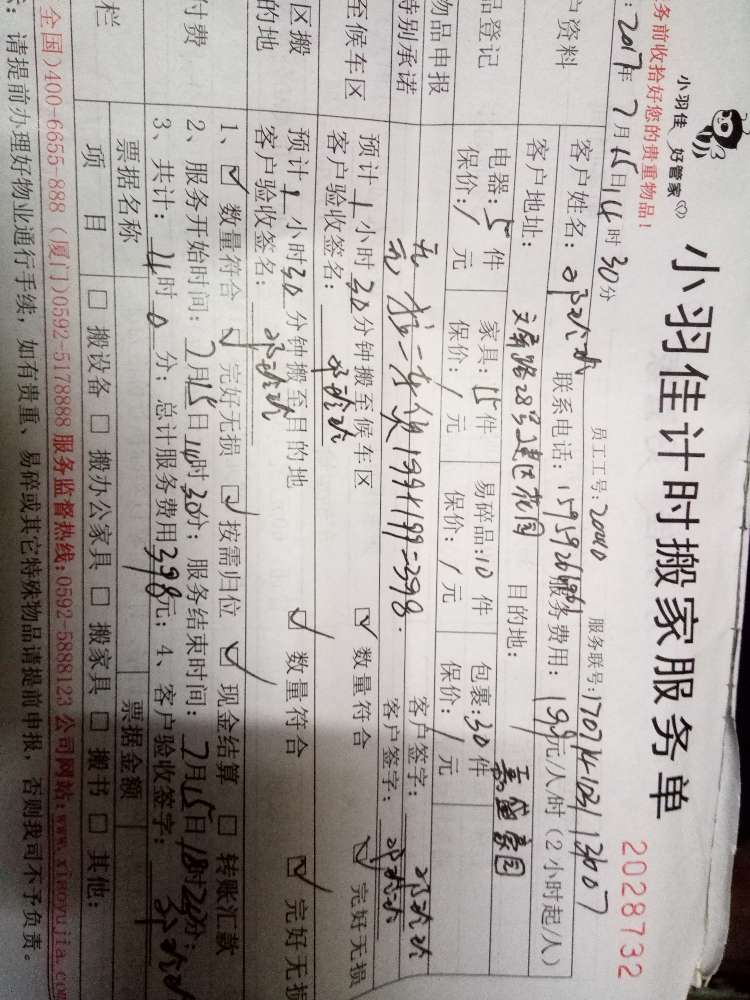 小羽佳 好管家
小羽佳计时搬家服务单
2028732
务前收拾好您的贵重物品!
员工工号: 20040 服务联号: 170714103113607
: 2017年7月15日14时30分
户资料
客户姓名: 联系电话: 服务费用: 199元/人/时(2小时起/人)
客户地址: 文屏路28号建区花园 目的地: 嘉盛豪园
品登记
电器: 5件 家具: 15件 易碎品: 10件 包裹: 30件
保价: / 元 保价: / 元 保价: / 元 保价: / 元
物品申报
无 客户签字:
特别承诺
199+199=398. 客户签字:
至候车区
预计1小时30分钟搬至候车区 ☑ 数量符合 ☑ 完好无损
客户验收签名:
区搬
预计1小时30分钟搬至目的地 ☑ 数量符合 ☑ 完好无损
的地
客户验收签名:
1、☑ 数量符合 ☑ 完好无损 ☑ 按需归位 ☑ 现金结算 □ 转账汇款
付费
2、服务开始时间: 7月15日14时30分; 服务结束时间: 7月15日18时20分;
3、共计: 4时0分; 总计服务费用398元; 4、客户验收签字:
票据名称 票据金额
栏
项目 □ 搬设备 □ 搬办公家具 □ 搬家具 □ 搬书 □ 其他:
全国)400-6655-888 (厦门)0592-5178888 服务监督热线: 0592-5888123 公司网站: www.xiaoyujia.co
: 请提前办理好物业通行手续, 如有贵重、易碎或其它特殊物品请提前申报, 否则我司不予负责。